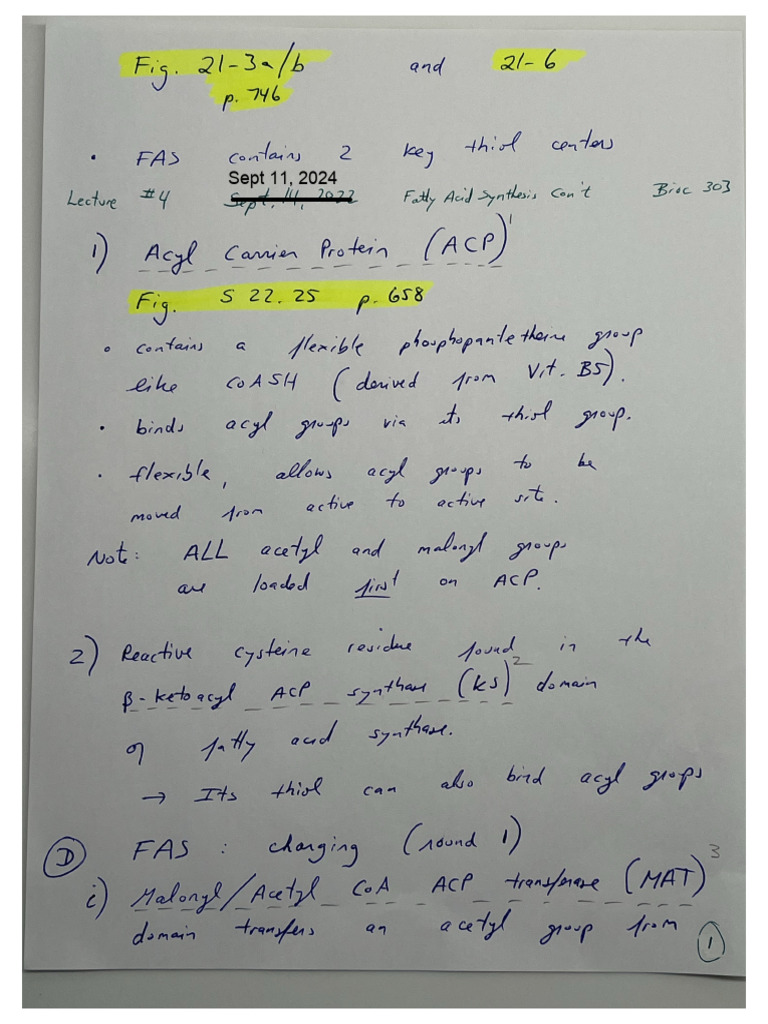 Fig. 21-3a/b and 21-6
p. 746
• FAS contains 2 key thiol centers
Sept 11, 2024
Lecture #4 Sept. 14, 2022 Fatty Acid Synthesis Con't Bioc 303
1) Acyl Carrier Protein (ACP) 1
Fig. S 22.25 p. 658
• contains a flexible phosphopantetheine group
like CoASH (derived from Vit. B5).
• binds acyl groups via its thiol group.
• flexible, allows acyl groups to be
moved from active to active site.
Note: ALL acetyl and malonyl groups
are loaded first on ACP.
2) Reactive cysteine residue found in the
β-ketoacyl ACP synthase (KS) 2 domain
of fatty acid synthase.
→ Its thiol can also bind acyl groups
D FAS : charging (round 1)
i) Malonyl/Acetyl CoA ACP transferase (MAT) 3
domain transfers an acetyl group from
1